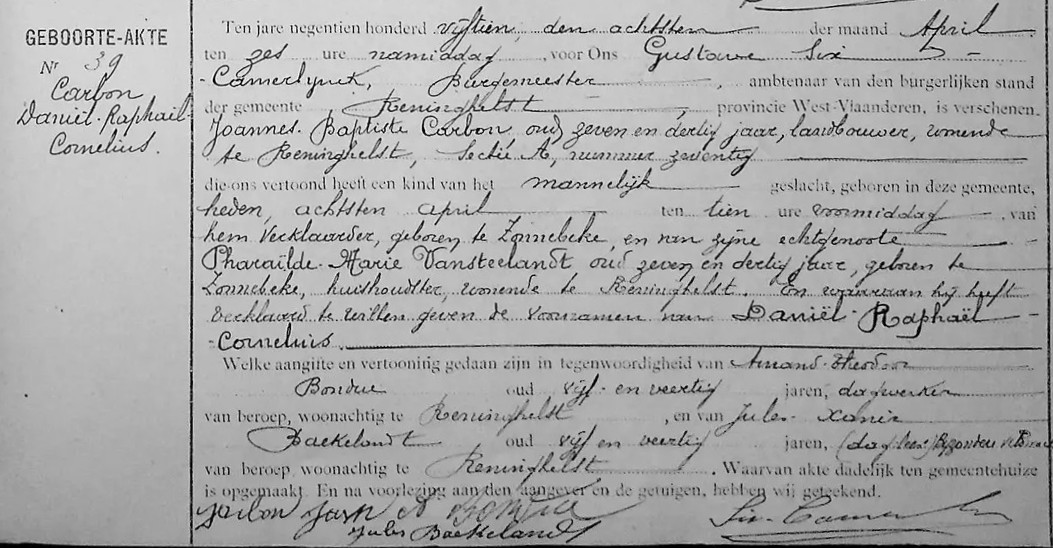 GEBOORTE-AKTE
Nr 39
Carbon
Daniël-Raphaël-
Cornelius.
Ten jare negentien honderd vijftien, den achtsten der maand April
ten zes ure namiddag, voor Ons Gustave Six
-Camerlynck, Burgemeester, ambtenaar van den burgerlijken stand
der gemeente Reninghelst, provincie West-Vlaanderen, is verschenen
Joannes-Baptiste Carbon oud zeven en dertig jaar, landbouwer, wonende
te Reninghelst, Sectie A, nummer zeventig
die ons vertoond heeft een kind van het mannelijk geslacht, geboren in deze gemeente,
heden, achtsten april ten tien ure voormiddag, van
hem verklaarder, geboren te Zonnebeke, en van zijne echtgenoote
Pharaïlde-Marie Vansteelandt oud zeven en dertig jaar, geboren te
Zonnebeke, huishoudster, wonende te Reninghelst. En waarvan hij heeft
verklaard te willen geven de voornamen van Daniël-Raphaël
-Cornelius.
Welke aangifte en vertooning gedaan zijn in tegenwoordigheid van Amand-Theodoor
Bondue oud vijf en veertig jaren, dagwerker
van beroep, woonachtig te Reninghelst, en van Jules-Xavier
Baekelandt oud vijf en veertig jaren, Bijzondere
van beroep woonachtig te Reninghelst. Waarvan akte dadelijk ten gemeentehuize
is opgemaakt. En na voorlezing aan den aangever en de getuigen, hebben wij geteekend.
Carbon A Bondue Six-Camerlynck
Jules Baekelandt